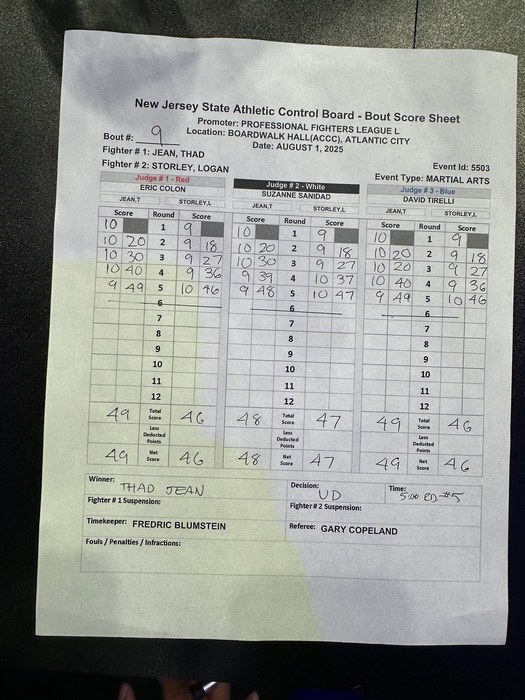 New Jersey State Athletic Control Board - Bout Score Sheet
Promoter: PROFESSIONAL FIGHTERS LEAGUE L
Location: BOARDWALK HALL(ACCC), ATLANTIC CITY
Date: AUGUST 1, 2025
Bout #: 9
Fighter # 1: JEAN, THAD
Fighter # 2: STORLEY, LOGAN
Event Id: 5503
Event Type: MARTIAL ARTS
Judge # 1 - Red
ERIC COLON
JEAN,T STORLEY,L
Score Round Score
10 1 9
10 20 2 9 18
10 30 3 9 27
10 40 4 9 36
9 49 5 10 46
6
7
8
9
10
11
12
49 Total Score 46
Less Deducted Points
49 Net Score 46
Judge # 2 - White
SUZANNE SANIDAD
JEAN,T STORLEY,L
Score Round Score
10 1 9
10 20 2 9 18
10 30 3 9 27
9 39 4 10 37
9 48 5 10 47
6
7
8
9
10
11
12
48 Total Score 47
Less Deducted Points
48 Net Score 47
Judge # 3 - Blue
DAVID TIRELLI
JEAN,T STORLEY,L
Score Round Score
10 1 9
10 20 2 9 18
10 20 3 9 27
10 40 4 9 36
9 49 5 10 46
6
7
8
9
10
11
12
49 Total Score 46
Less Deducted Points
49 Net Score 46
Winner: THAD JEAN
Decision: UD
Time: 5:00 RD #5
Fighter # 1 Suspension:
Fighter # 2 Suspension:
Timekeeper: FREDRIC BLUMSTEIN
Referee: GARY COPELAND
Fouls / Penalties / Infractions: